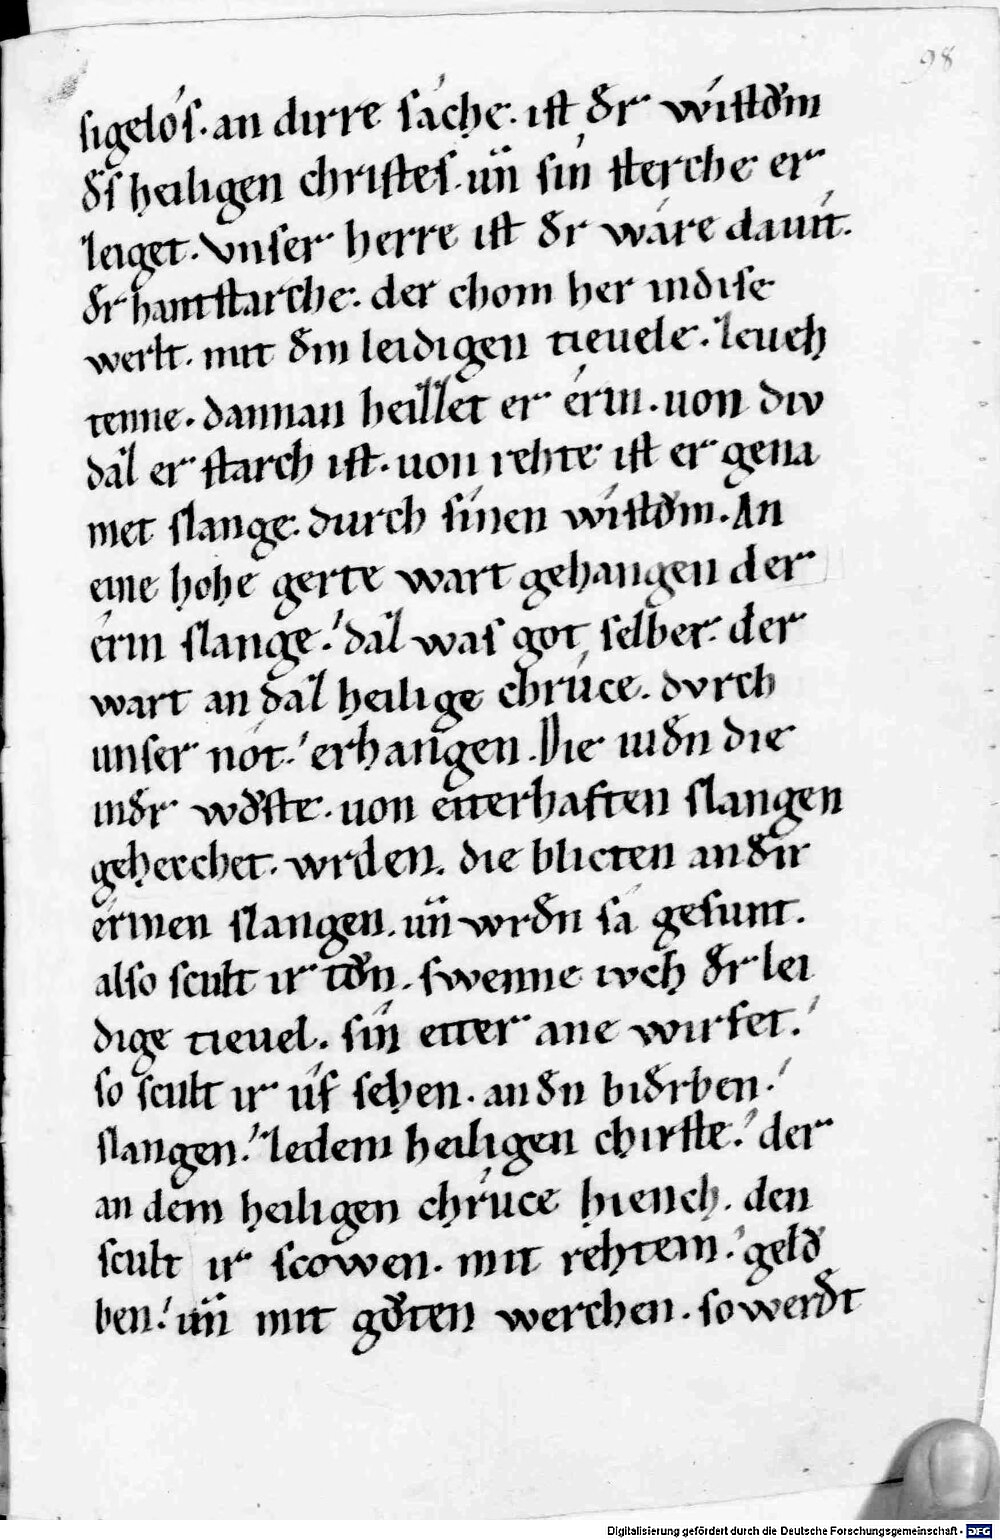 98
sigelós. an dirre sáche. ist dͤr wistǒm
dͤs heiligen christes. uñ sín sterche er
zeiget. Vnser herre ist dͤr wáre dauit.
dͤr hantstarche. der chom her indise
werlt. mit dͤm leidigen tieuele. zeueh
tenne. dannan heizzet er érin. uon div
daz er starch ist. uon rehte ist er gena
met slange. durch sínen wístǒm. An
eine hohe gerte wart gehangen der
érin slange. daz was got selber. der
wart an daz heilige chrúce. dvrch
unser nót. erhangen. Die iudͤn die
indͤr wǒste. uon eiterhaften slangen
geheechet. wrden. die blicten an dͤn
érinen slangen. uñ wrdͤn sá gesunt.
also scult ir tǒn. swenne iweh dͤr lei
dige tieuel. sín eiter ane wirfet.
so scult ir úf sehen. an dͤn bidͤrben.
slangen. zedem heiligen chirste. der
an dem heiligen chrúce hiench. den
scult ir scowen. mit rehtem. gelǒ
ben. uñ mit gǒten werchen. so werdͤt
Digitalisierung gefördert durch die Deutsche Forschungsgemeinschaft - DFG